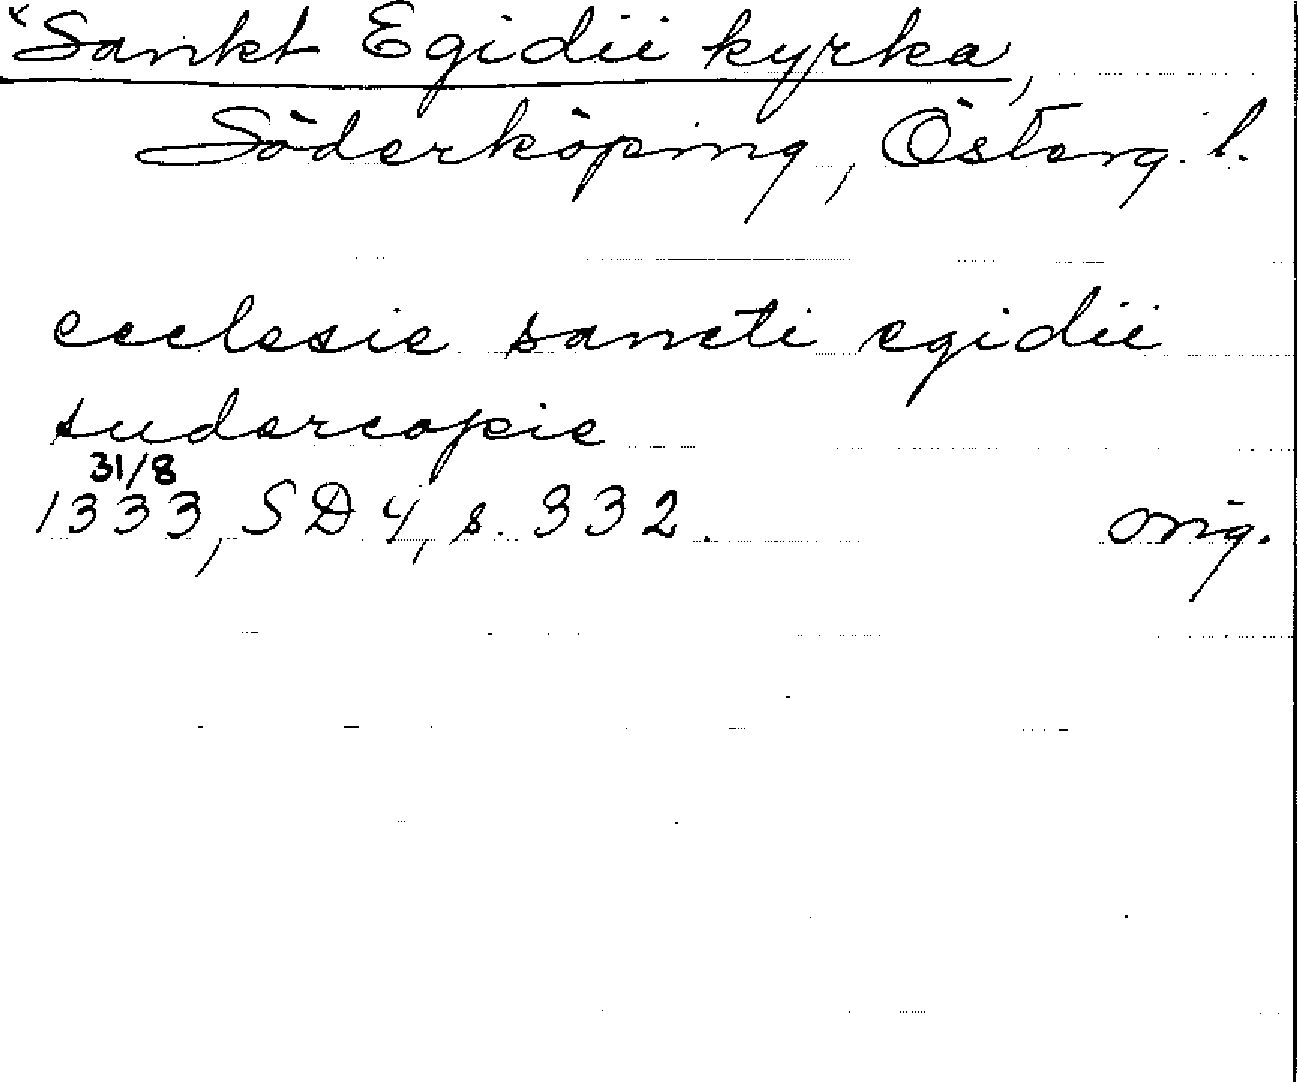 Sankt Egidii kyrka,
Söderköping, Österg. l.
ecclesie sancti egidii
sudercopie
31/8
1333, SD 4, s. 332. orig.